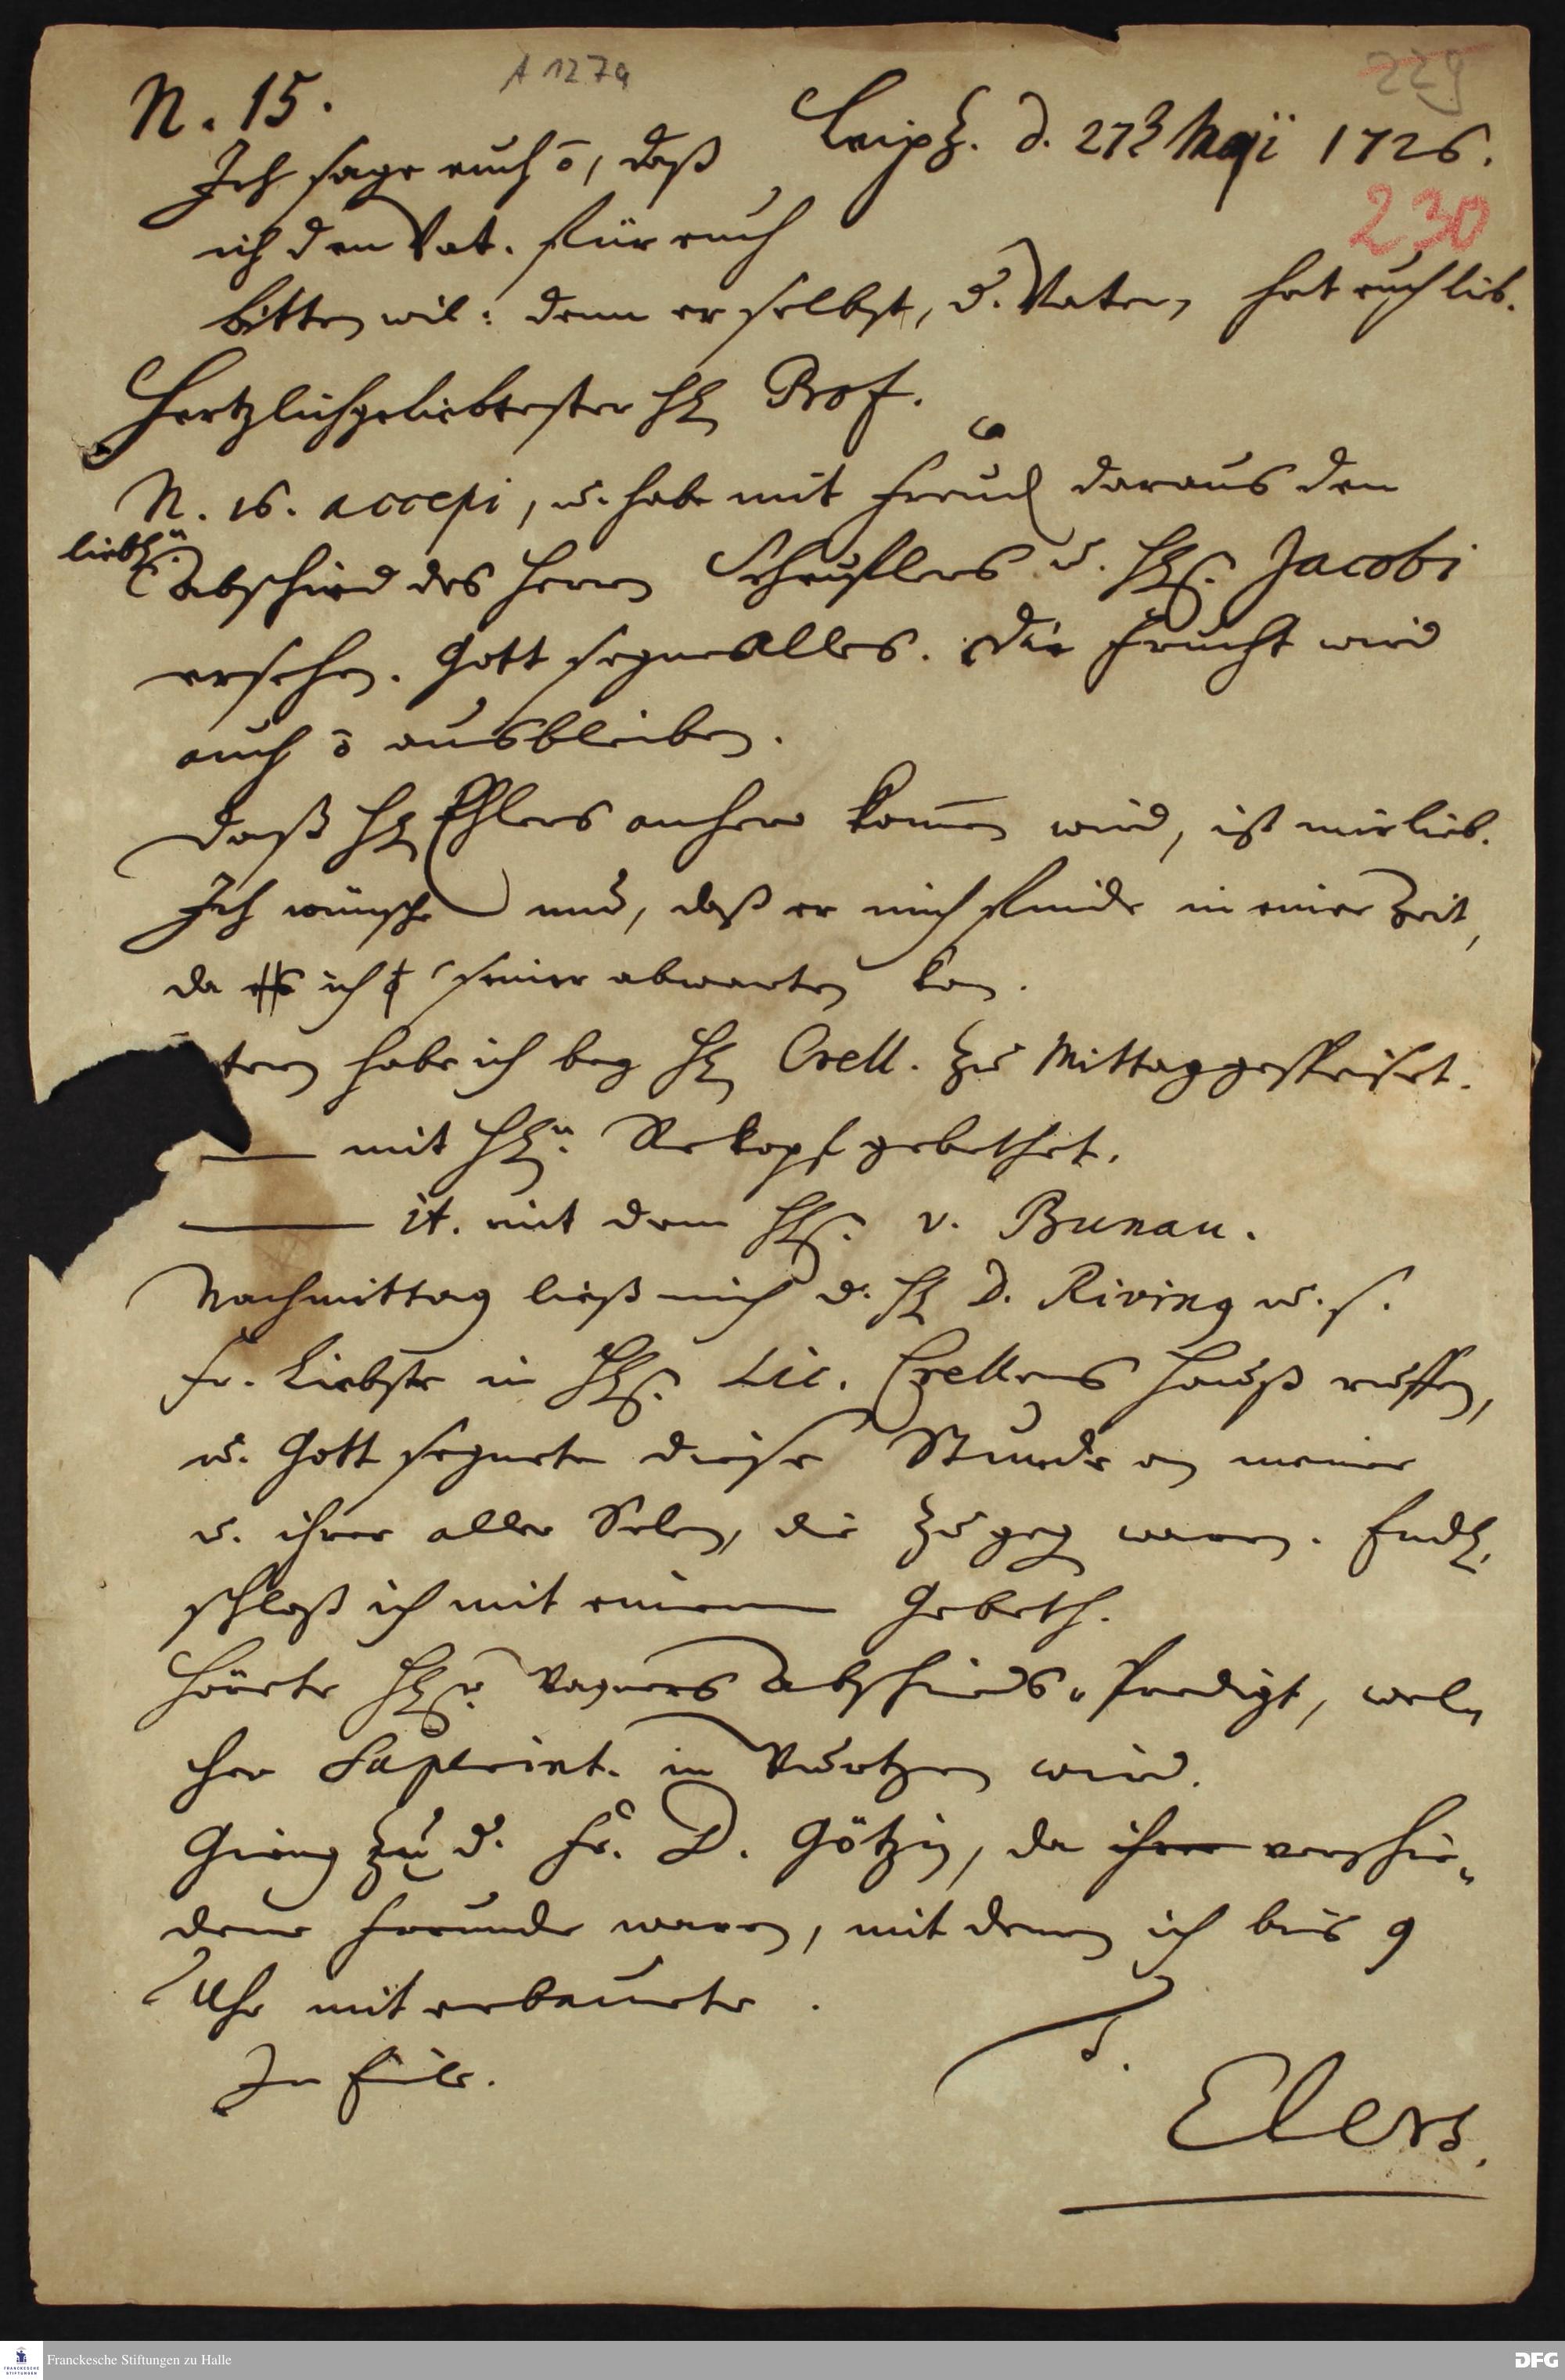 A 127a
229
N. 15.
Leipz. d. 27 Maji 1726.
230
Ich sage euch õ, daß
ich den Vat. für euch
bitten wil: denn er selbst, d. Vater, hat euch lieb.
Hertzlichgeliebtester H Prof.
N. 16. accepi, u. habe mit Freud daraus den
liebl.
Abschied des Herrn Scheuflers u. H. Jacobi
ersehen. Gott segne Alles. Die Frucht wird
auch õ ausbleiben.
Daß H Ehlers anhero kom̄en wird, ist mir lieb.
Ich wünsche nur, daß er mich finde in einer Zeit,
da ich seiner abwarten kan.
tern habe ich bey H Crell. zu Mittag gespeiset.
mit H. Rekopf gebethet.
it. mit dem H. v. Bunau.
Nachmittag ließ mich d. H D. Riving u. s.
Fr. Liebste in H. Lic. Crellens Hauß ruffen,
u. Gott segnete diese Stunde an meiner
u. ihrer aller Selen, die zugeg waren. Endl.
schloß ich mit einem Gebeth.
Hörete H. Wagners Abschieds-Predigt, wel-
cher Superint. in Wurtzen wird.
Gieng zu d. Fr. D. Götzin, da ihrer verschie-
dene Freunde waren, mit denen ich bis 9
Uhr mit erbauete.
In Eile.
Elers.
Franckesche Stiftungen zu Halle
FRANCKESCHE STIFTUNGEN
DFG